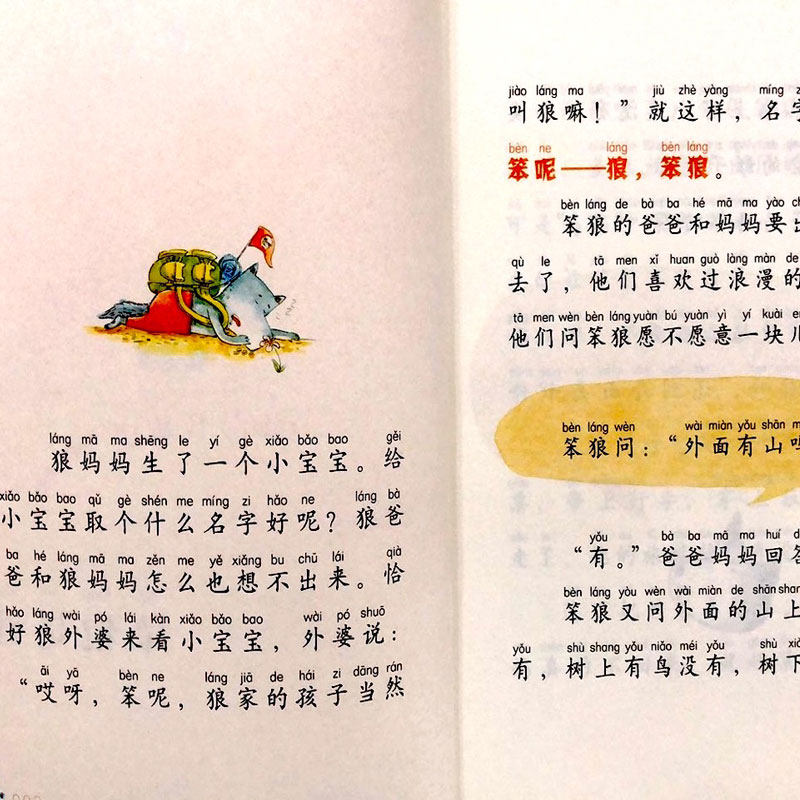 láng mā ma shēng le yí gè xiǎo bǎo bao gěi
狼妈妈生了一个小宝宝。给
xiǎo bǎo bao qǔ gè shén me míng zi hǎo ne láng bà
小宝宝取个什么名字好呢？狼爸
ba hé láng mā ma zěn me yě xiǎng bu chū lái qià
爸和狼妈妈怎么也想不出来。恰
hǎo láng wài pó lái kàn xiǎo bǎo bao wài pó shuō
好狼外婆来看小宝宝，外婆说：
āi yā bèn ne láng jiā de hái zi dāng rán
“哎呀，笨呢，狼家的孩子当然
jiào láng ma jiù zhè yàng míng
叫狼嘛！”就这样，名字
bèn ne láng bèn láng
笨呢——狼，笨狼。
bèn láng de bà ba hé mā ma yào
笨狼的爸爸和妈妈要
qù le tā men xǐ huan guò làng màn de
去了，他们喜欢过浪漫的
tā men wèn bèn láng yuàn bú yuàn yì yí kuài
他们问笨狼愿不愿意一块儿
bèn láng wèn wài miàn yǒu shān
笨狼问：“外面有山吗
yǒu bà ba mā ma huí
“有。”爸爸妈妈回答
bèn láng yòu wèn wài miàn de shān shang
笨狼又问外面的山上
yǒu shù shang yǒu niǎo méi yǒu shù
有，树上有鸟没有，树下